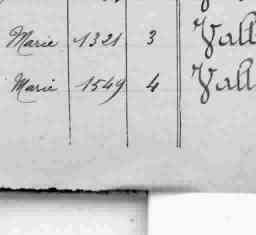 Marie 1321 3 Vall
Marie 1549 4 Vall